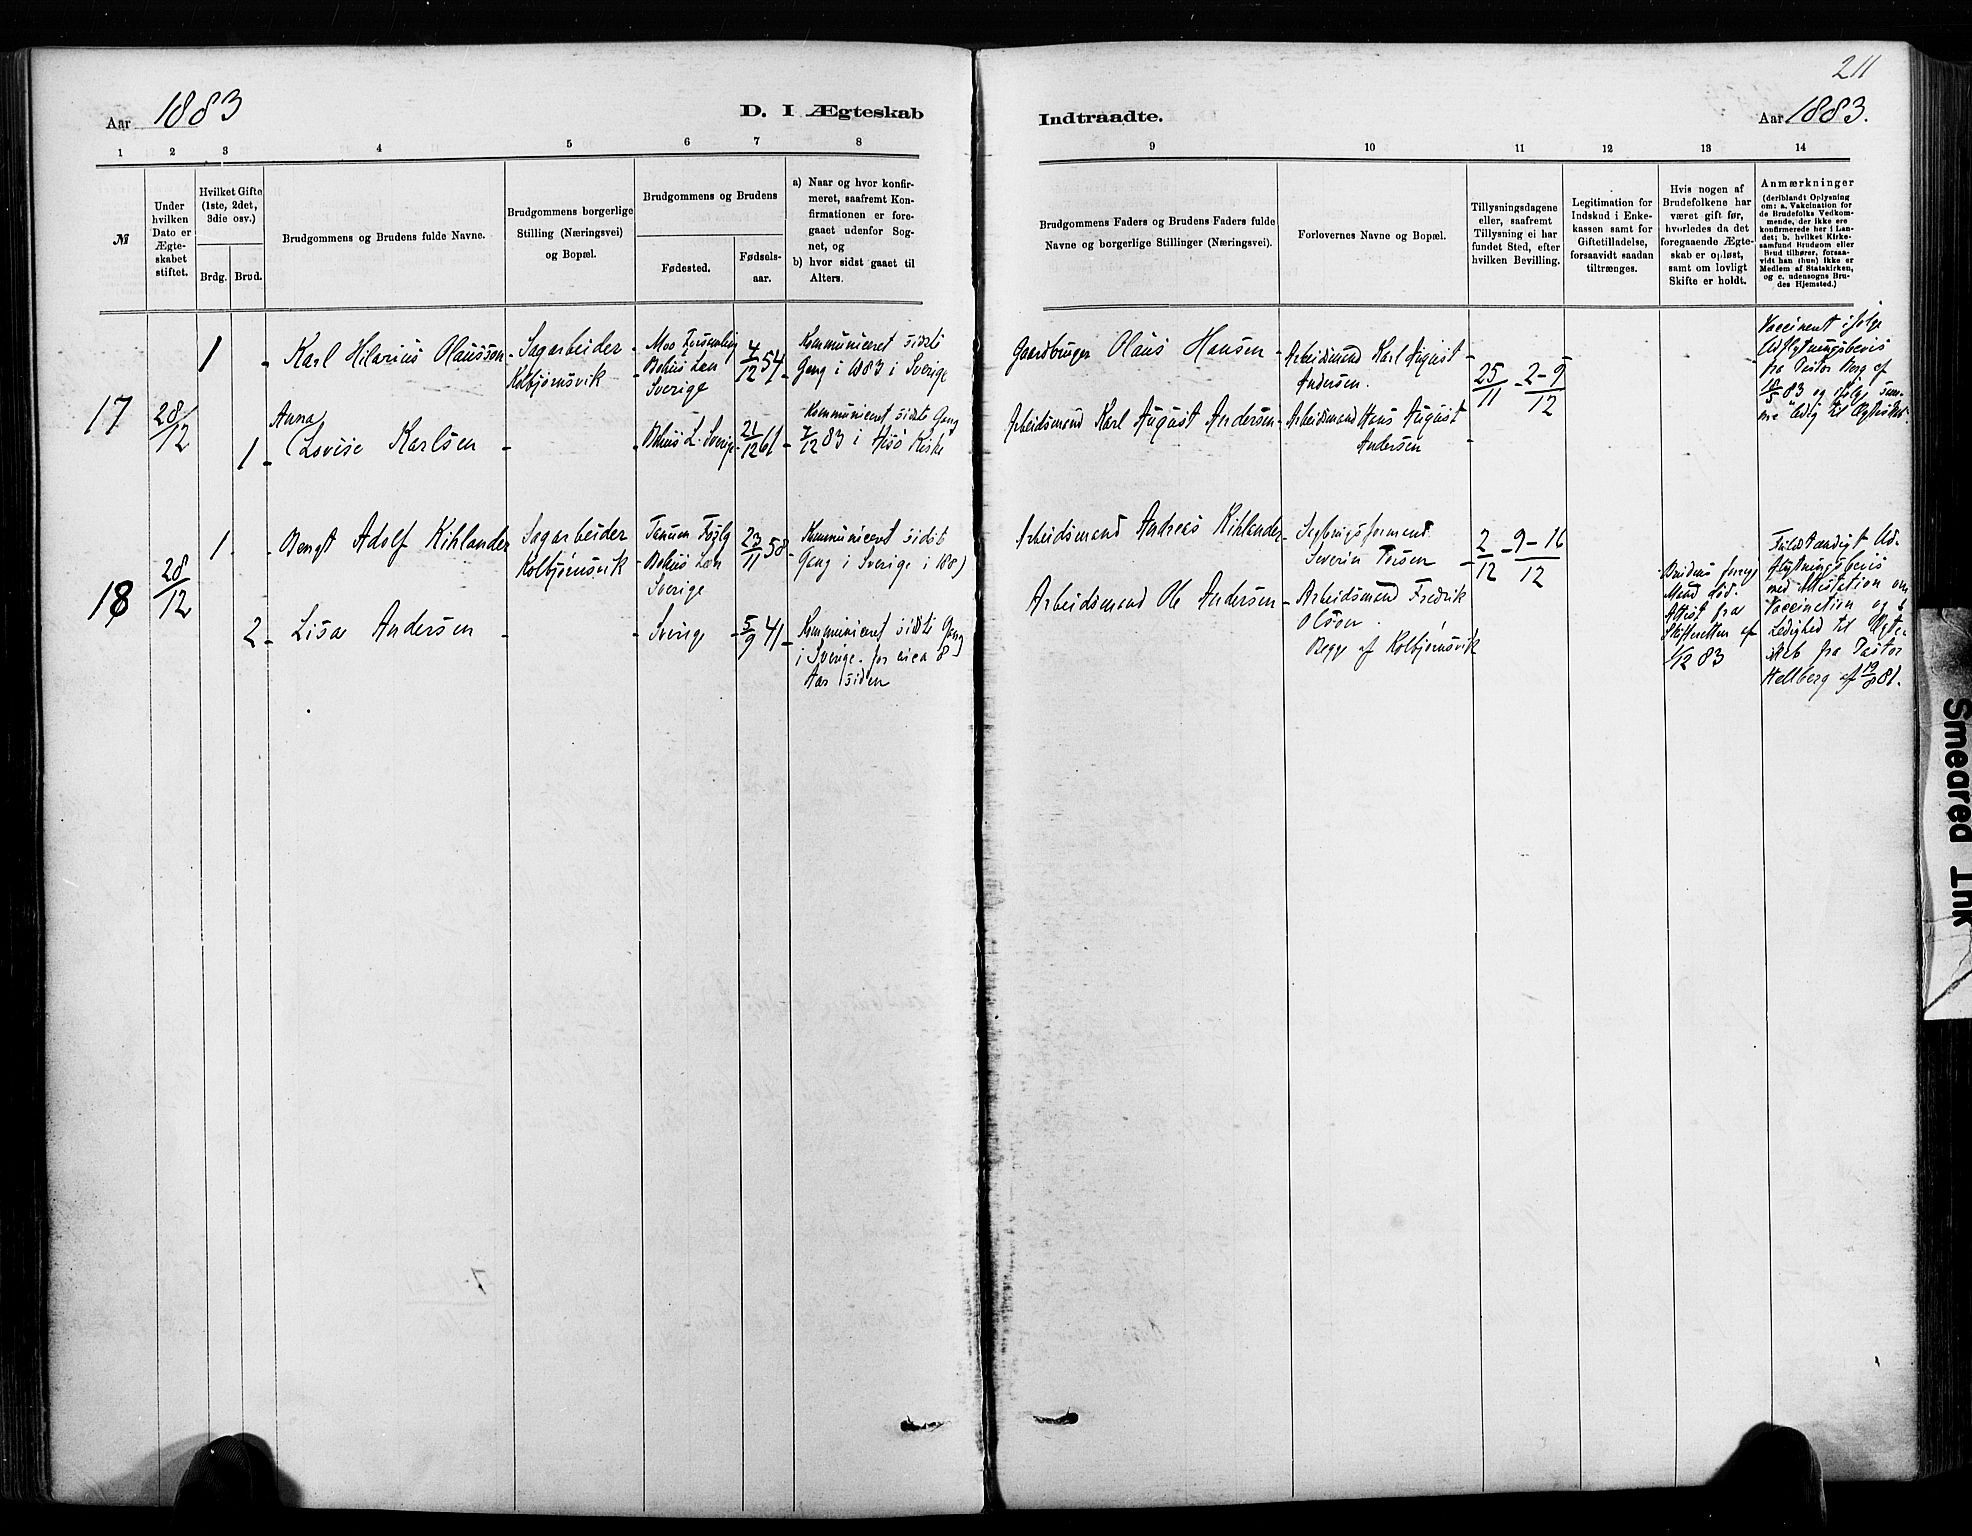 211
Aar 1883
D. I Ægteskab
Indtraadte.
Aar 1883.
1 2 3 4 5 6 7 8
9 10 11 12 13 14
№
Under hvilken Dato er Ægteskabet stiftet.
Hvilket Gifte (1ste, 2det, 3die osv.)
Brdg. Brud.
Brudgommens og Brudens fulde Navne.
Brudgommens borgerlige Stilling (Næringsvei) og Bopæl.
Brudgommens og Brudens
Fødested.
Fødselsaar.
a) Naar og hvor konfirmeret, saafremt Konfirmationen er foregaaet udenfor Sognet, og
b) hvor sidst gaaet til Alters.
Brudgommens Faders og Brudens Faders fulde Navne og borgerlige Stillinger (Næringsvei).
Forlovernes Navne og Bopæl.
Tillysningsdagene eller, saafremt Tillysning ei har fundet Sted, efter hvilken Bevilling.
Legitimation for Indskud i Enkekassen samt for Giftetilladelse, forsaavidt saadan tiltrænges.
Hvis nogen af Brudefolkene har været gift før, hvorledes da det foregaaende Ægteskab er opløst, samt om lovligt Skifte er holdt.
Anmærkninger (deriblandt Oplysning om: a. Vakcination for de Brudefolks Vedkommende, der ikke ere konfirmerede her i Landet; b. hvilket Kirkesamfund Brudgom eller Brud tilhører, forsaavidt han (hun) ikke er Medlem af Statskirken, og c. udensogns Brudes Hjemsted.)
17
28/12
1
Karl Hilarius Olausson
Sagarbeider
Kolbjørnsvik
Bohus Len
Sverige
4/12 54
Kommuniceret sidste
Gang i 1883 i Sverige
Gaardbruger Olaus Hansen
Arbeidsmand Karl August
Andersen.
25/11 - 2 - 9/12
Vaccineret ifølge
Udflytningsbevis
fra Pastor Berg af
18/5 83 og ifølge samme
ledig til Ægteskab.
1
Anna
Lovise Karlsen
Bohus L. Sverige
21/12 61
Kommuniceret sidste Gang
2/12 83 i Hisø Kirke
Arbeidsmand Karl August Andersen
Arbeidsmand Hans August
Andersen
18
28/12
1
Bengt Adolf Kihlander
Sagarbeider
Kolbjørnsvik
Tanum
Bohus Len
Sverige
23/11 58
Kommuniceret sidst
Gang i Sverige i
Arbeidsmand Andreas Kihlander
Severin Tersen
2/12 - 9 - 16/12
Fuldstændigt Udflytningsbevis
med Attestation om
Vaccination og
Ledighed til Ægteskab
fra Pastor
Hellberg af 19/8 81.
2
Lisa Andersen
Sverige
5/9 41
Kommuniceret sidste Gang
i Sverige for circa 8
Aar siden
Arbeidsmand Ole Andersen
Arbeidsmand Fredrik
Olsen.
Begge af Kolbjørnsvik
Brudens forrige
Mand død.
Attest fra
Skifteretten af
1/12 83
Smeared Ink